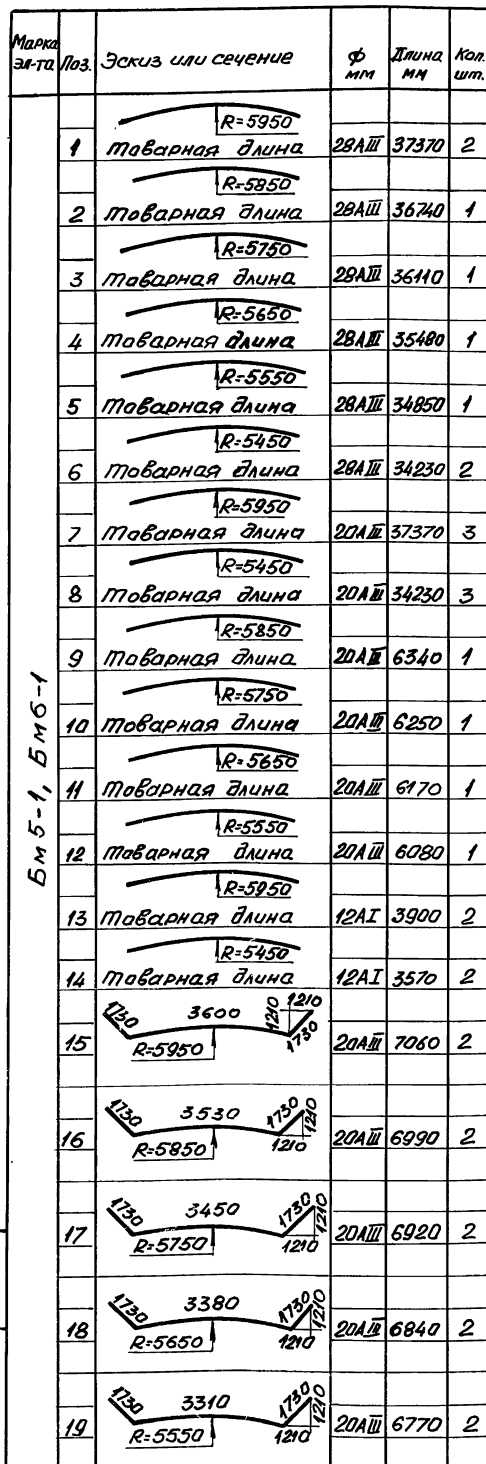 Марка эл-та Поз. Эскиз или сечение ф мм Длина мм Кол. шт.
Бм5-1, Бм6-1
R=5950
1 товарная длина 28АIII 37370 2
R=5850
2 товарная длина 28АIII 36740 1
R=5750
3 товарная длина 28АIII 36110 1
R=5650
4 товарная длина 28АIII 35480 1
R=5550
5 товарная длина 28АIII 34850 1
R=5450
6 товарная длина 28АIII 34230 2
R=5950
7 товарная длина 20АIII 37370 3
R=5450
8 товарная длина 20АIII 34230 3
R=5850
9 товарная длина 20АIII 6340 1
R=5750
10 товарная длина 20АIII 6250 1
R=5650
11 товарная длина 20АIII 6170 1
R=5550
12 товарная длина 20АIII 6080 1
R=5950
13 товарная длина 12АI 3900 2
R=5450
14 товарная длина 12АI 3570 2
1730 3600 1210 1210 1730
15 R=5950 20АIII 7060 2
1730 3530 1730 1210
16 R=5850 1210 20АIII 6990 2
1730 3450 1730 1210
17 R=5750 1210 20АIII 6920 2
1730 3380 1730 1210
18 R=5650 1210 20АIII 6840 2
1730 3310 1730 1210
19 R=5550 1210 20АIII 6770 2